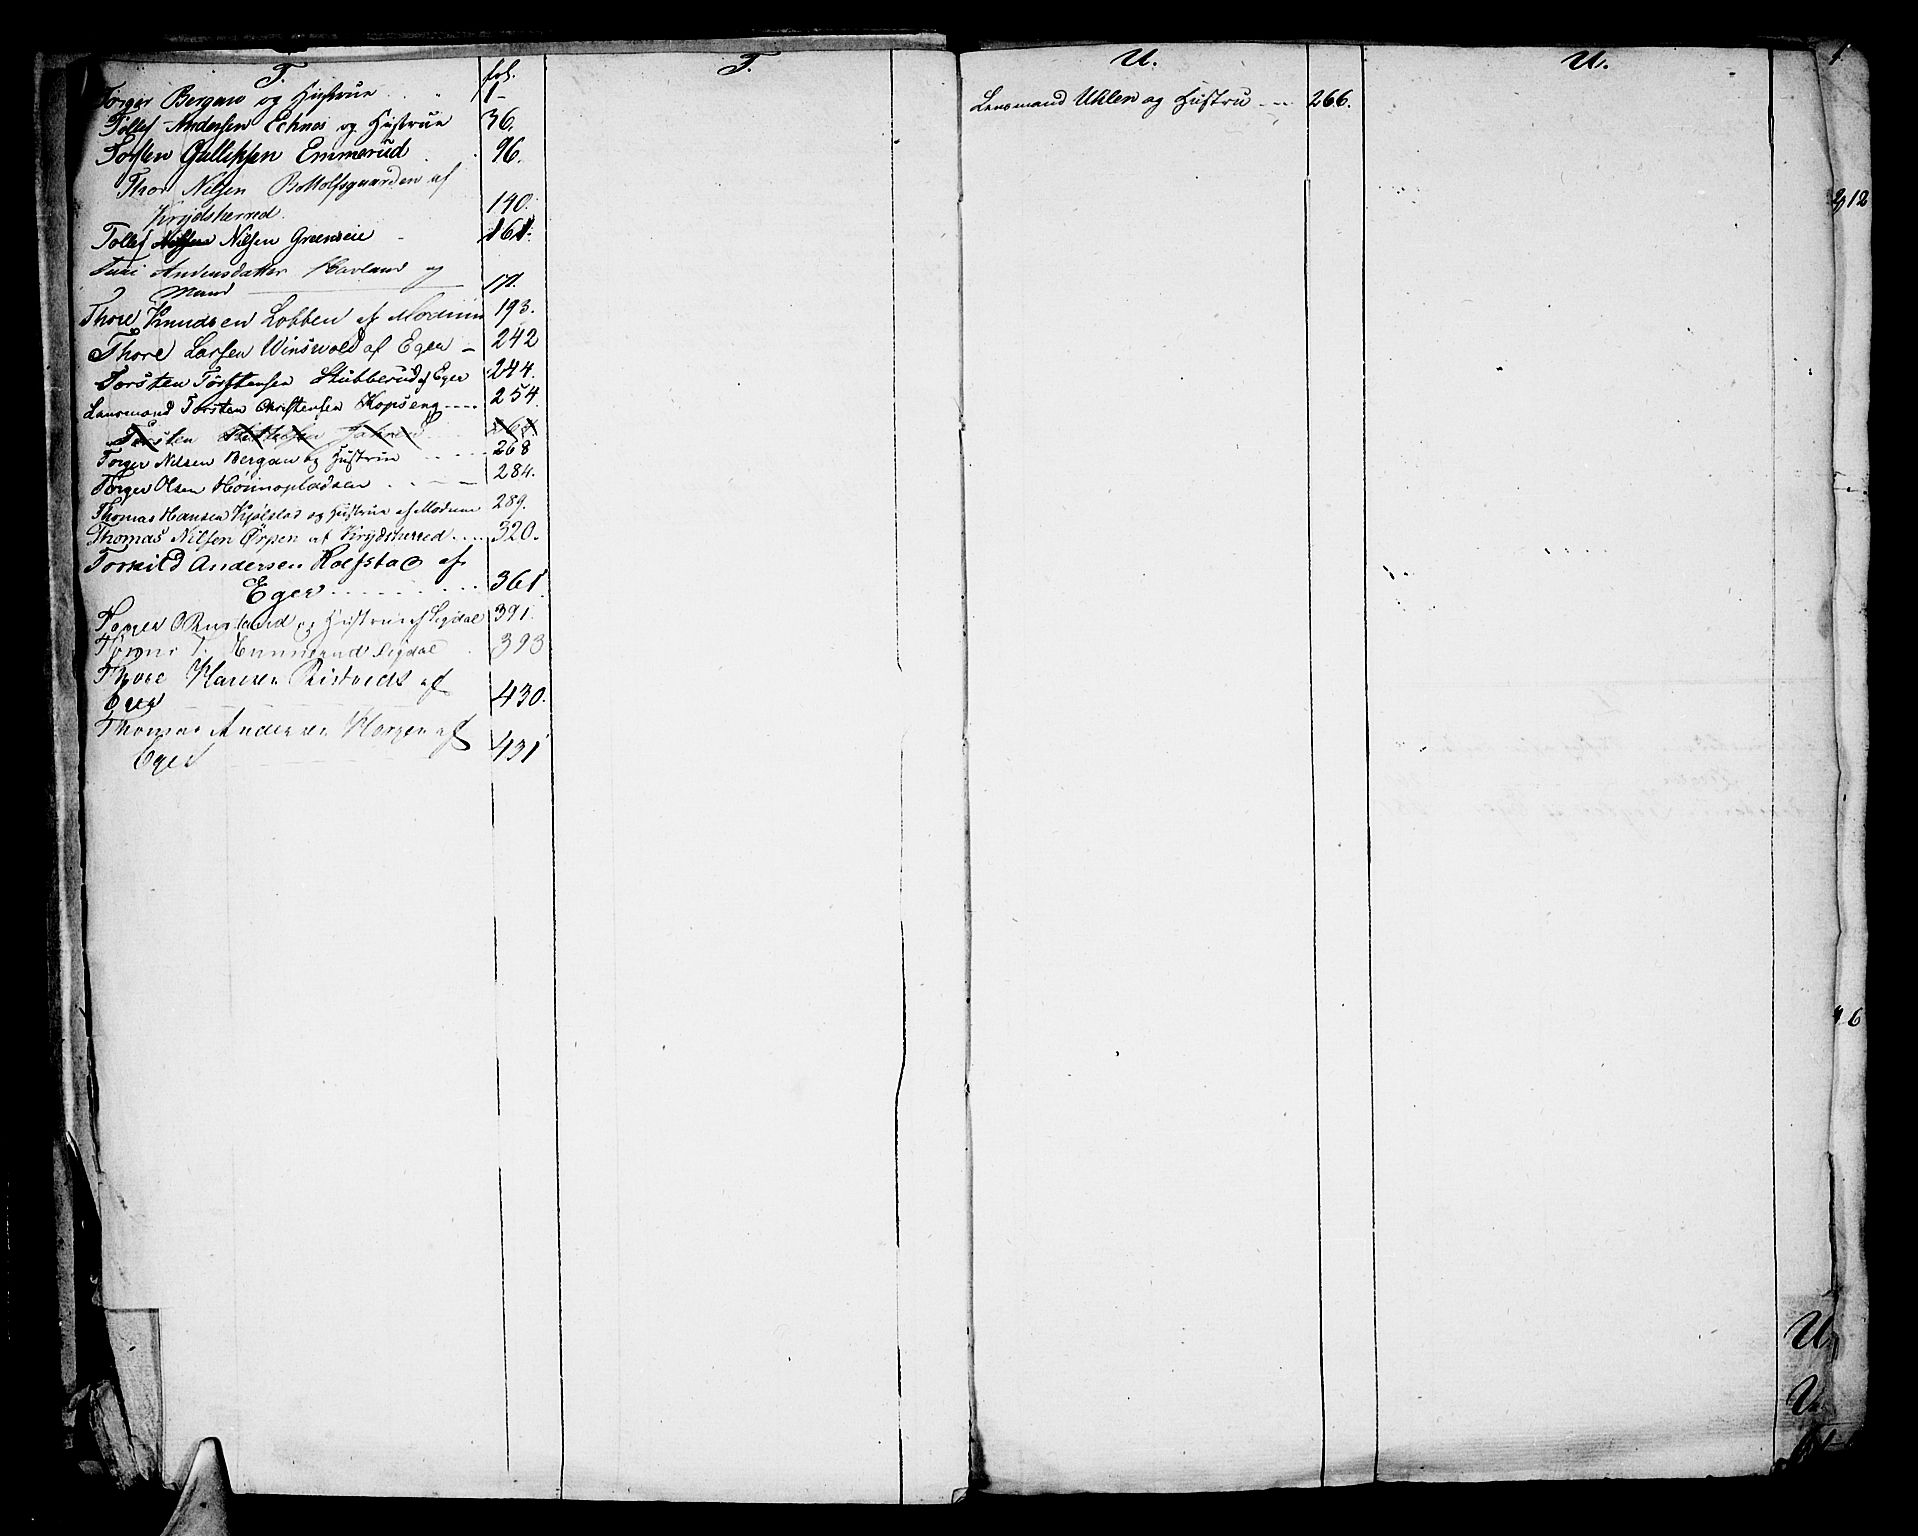 T.
fol.
Torger Bergan og Hustrue 1-
Tollef Andersen Echnes og Hustrue 36.
Torsten Gullichsen Emmerud 96.
Thor Nilsen Bottolfsgaarden af
Krydsherred. 140.
Tollef Nilsen Greenseie 161.
Turi Andersdatter Havland og
Mand 171.
Thore Knudsen Lobben af Modum 193.
Thore Larsen Winsvold af Eger 242
Torsten Torstensen Stubberud af Eger 244.
Lensmand Torsten Christensen Kopseng 254.
Torsten
Torger Nilsen Bergan og Hustrue 268
Torger Olsen Hørnopladsen 284.
Thomas Hansen Kjølstad og Hustrue af Modum 289.
Thomas Nilsen Ørpen af Krydsherred 320.
Torkild Andersen Kolfstad af
Eger 361
Torger O Ruuland og Hustrue af Sigdal 391.
T. Emmerud Sigdal 393
Thore Hansen af
Eger 430.
Thomas Andersen Horgen af
Eger 431
T.
U.
Lensmand Uhlen og Hustru 266.
U.
1
212
6
U
V